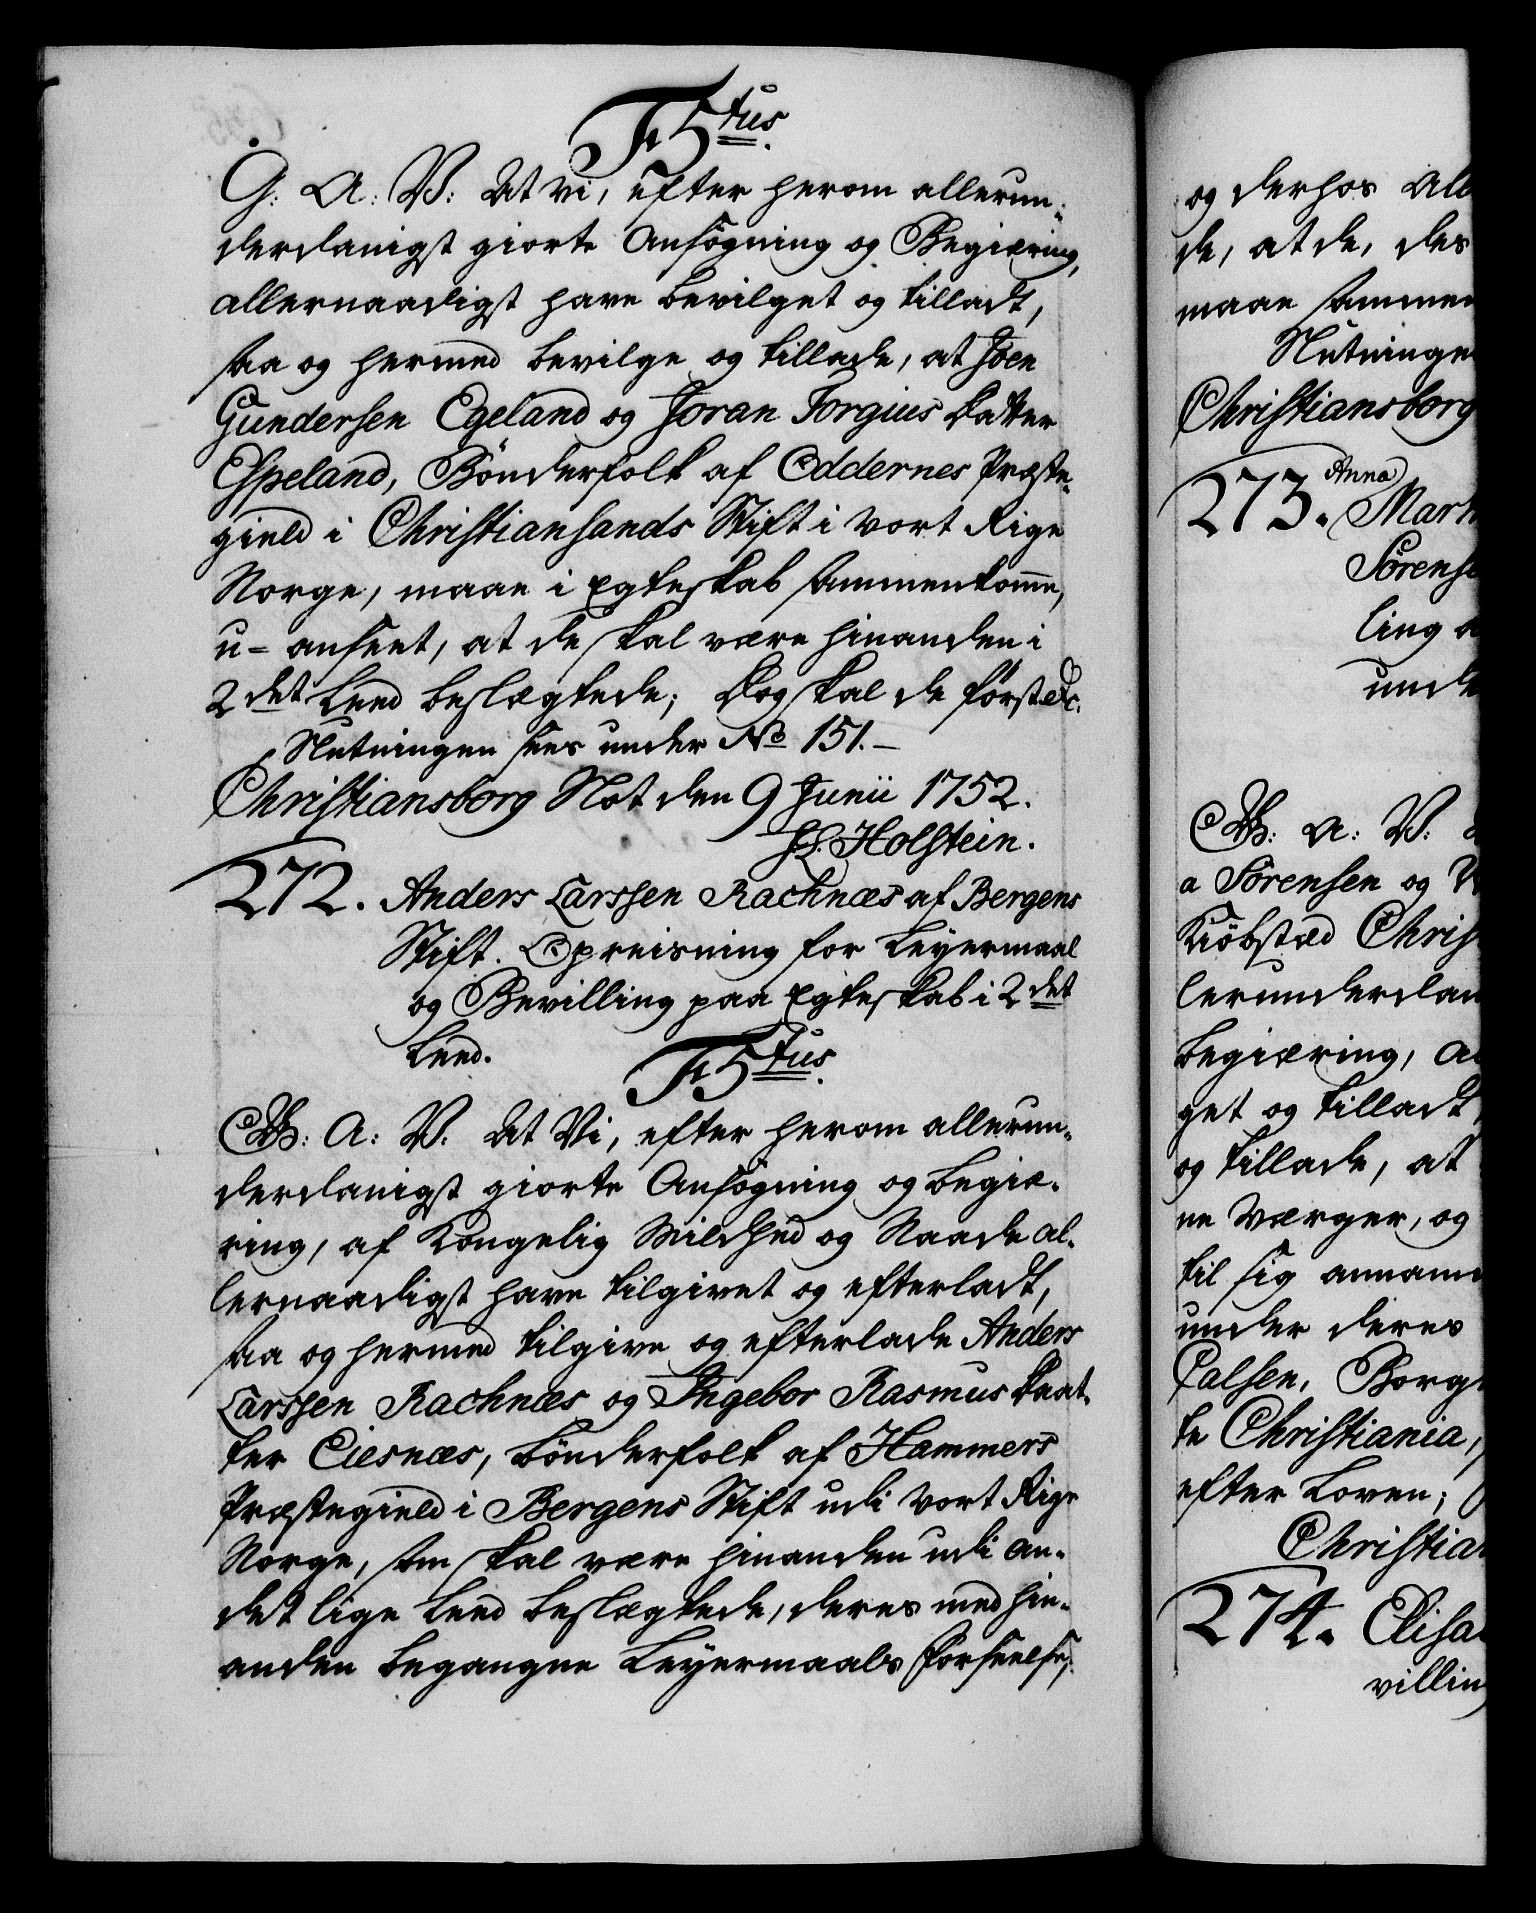 F5tus.
G: A: V: At vi, efter herom allerun-
derdanigst giorte Ansøgning og Begiæring,
allernaadigst have bevilget og tilladt,
saa og hermed bevilge og tillade, at Joen
Gundersen Egeland og Joran Torgius Datter
Espeland, Bønderfolk af Oddernes Præste-
gield i Christiansands Stift i vort Rige
Norge, maae i Egteskab sammenkomme,
u-anseet, at de skal være hinanden i
2det Leed beslægtede; Dog skal de først &c.
Slutningen sees under No 151.
Christiansborg Slot den 9 Junii 1752.
J L: Holstein.
272. Anders Larssen Rachnæs af Bergens
Stift. Opreisning for Leyermaal
og Bevilling paa Egteskab i 2det
Leed.
F5tus.
G: A: V: At Vi, efter herom allerun-
derdanigst giorte Ansøgning og begiæ-
ring, af Kongelig Mildhed og Naade al-
lernaadigst have tilgivet og efterladt,
saa og hermed tilgive og efterlade Anders
Larssen Rachnæs og Ingebor Rasmus Daat-
ter Eiesnæs, bønderfolk af Hammers
Præstegield i Bergens Stift udi vort Rige
Norge, som skal være hinanden udi an-
det lige Leed beslægtede, deres med hin-
anden begangne Leyermaals Forseelse,
og derhos All
de, at de, des
maae sammen
Slutninge
Christiansborg
273. Anna
Mart
Sørens
ling
unde
G: A: V:
a Sørensen og
Kiøbstæd Chris
lerunderdan
begiæring, al
get og tilladt,
og tillade, at
ne Værger, og
til sig annam
under deres
Calsen, Borg
te Christiania,
efter Loven;
Christian
274. Elisa
villin